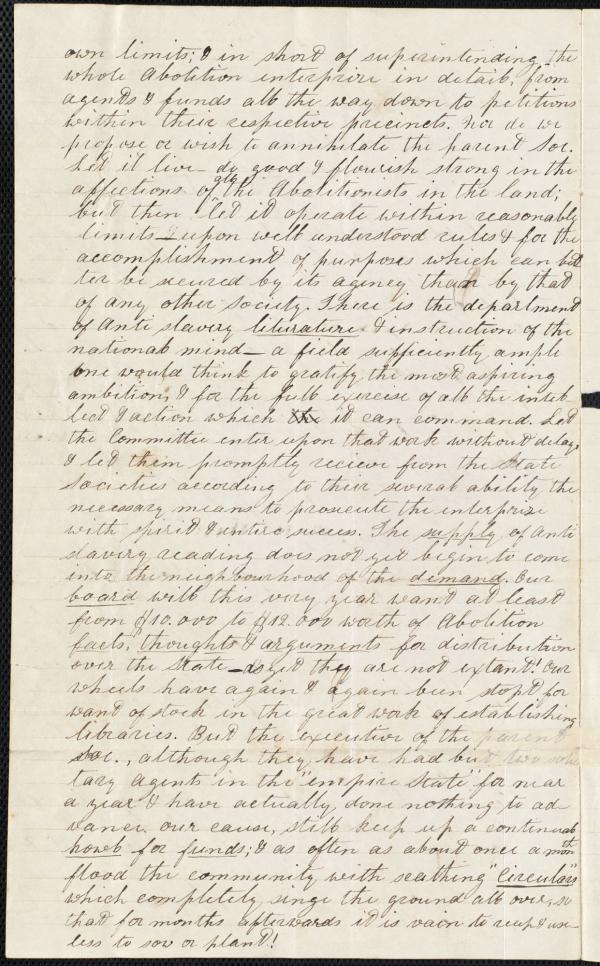 own limits; & in short of superintending the
whole Abolition enterprize in detail, from
agents & funds all the way down to petitions
within their respective precincts. Nor do we
propose or wish to annihilate the parent Soc.
Let it live – do good & flourish strong in the
affections of all the Abolitionists in the land;
but then let it operate within reasonably
limits – & upon well understood rules & for the
accomplishment of purposes which can bet
ter be secured by its agency than by that
of any other Society. There is the department
of Anti slavery literature & instruction of the
national mind – a field sufficiently ample
one would think to gratify the most aspiring
ambition, & for the full exercise of all the intel
lect & action which it can command. Let
the Committee enter upon that work without delay
& let them promptly recieve from the State
Societies according to their several ability the
necessary means to prosecute the enterprize
with spirit & entire success. The supply of Anti
slavery reading does not yet begin to come
into the neighbourhood of the demand. Our
board will this very year want at least
from $10.000 to $12.000 worth of Abolition
facts, thoughts & arguments for distribution
over the State – as yet they are not extant! Our
wheels have again & again been stopt for
want of stock in the great work of establishing
libraries. But the executive of the parent
soc., although they have had but two soli
tary agents in the "empire State" for near
a year & have actually done nothing to ad-
vance our cause, still keep up a continual
howl for funds; & as often as about once a month
flood the community with scathing "Circulars"
which completely singe the ground all over, so
that for months afterwards it is vain to reap & use-
less to sow or plant!